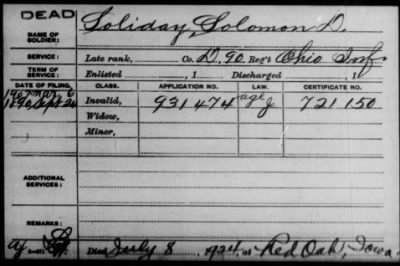 DEAD
NAME OF SOLDIER: Soliday, Solomon D.
SERVICE: Late rank, Co. D, 90 Reg't Ohio Inf.
TERM OF SERVICE: Enlisted , 1 Discharged , 1
DATE OF FILING. CLASS. APPLICATION NO. LAW. CERTIFICATE NO.
1907 Mar 6
1890 Sept 24 Invalid, 931474 age J 721150
Widow,
Minor,
ADDITIONAL SERVICES:
REMARKS:
Died July 8, 1924, at Red Oak, Iowa